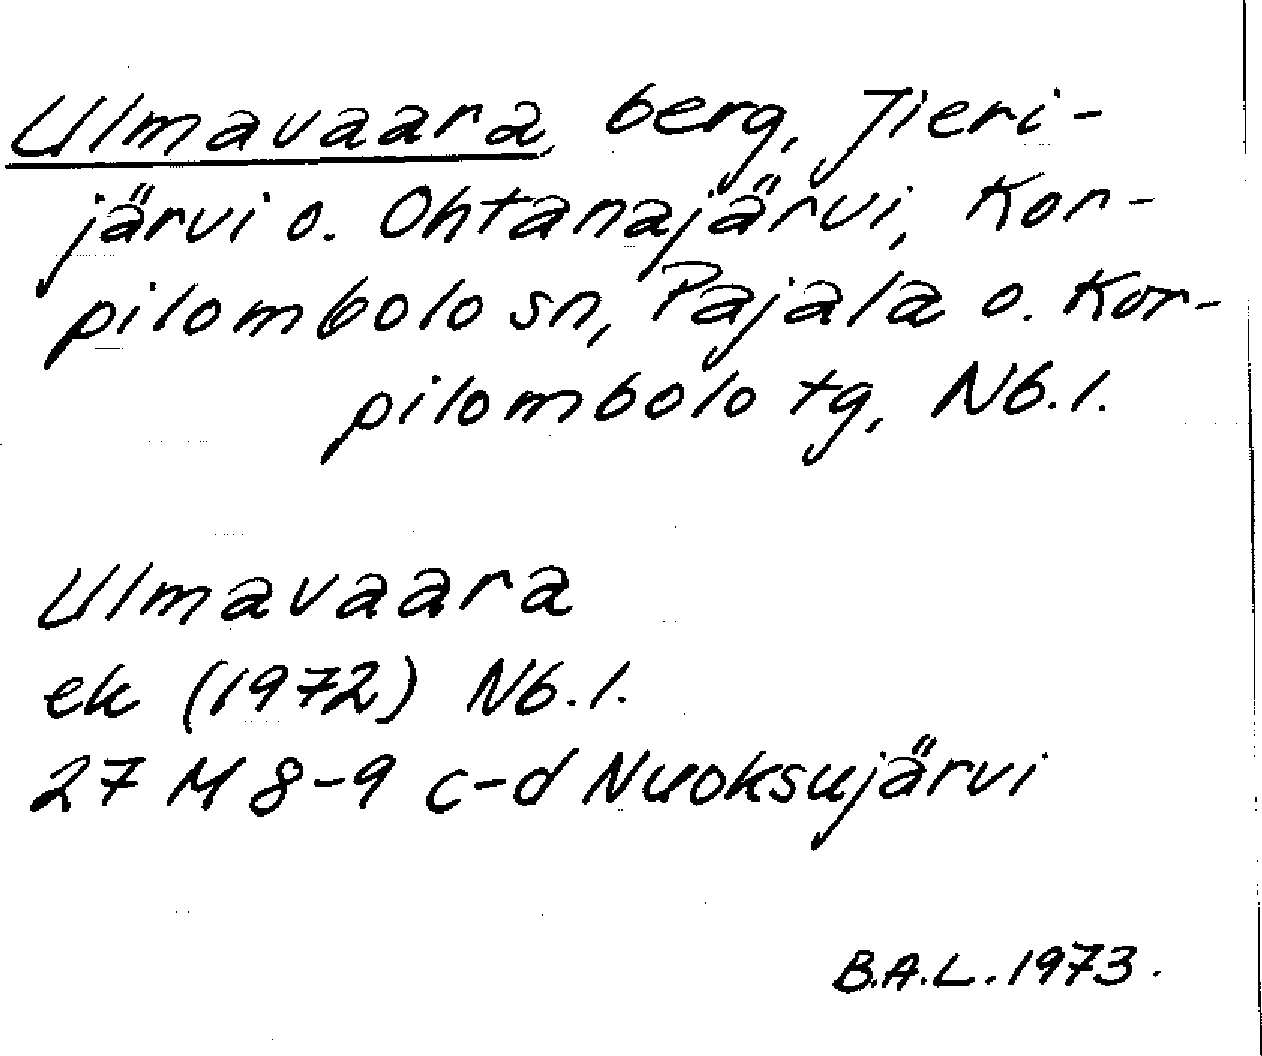 Ulmavaara, berg, Jieri-
järvi o. Ohtanajärvi, Kor-
pilombolo sn, Pajala o. Kor-
pilombolo tg, Nb.l.
Ulmavaara
ek (1972) Nb.l.
27 M 8-9 c-d Nuoksujärvi
B.A.L. 1973.